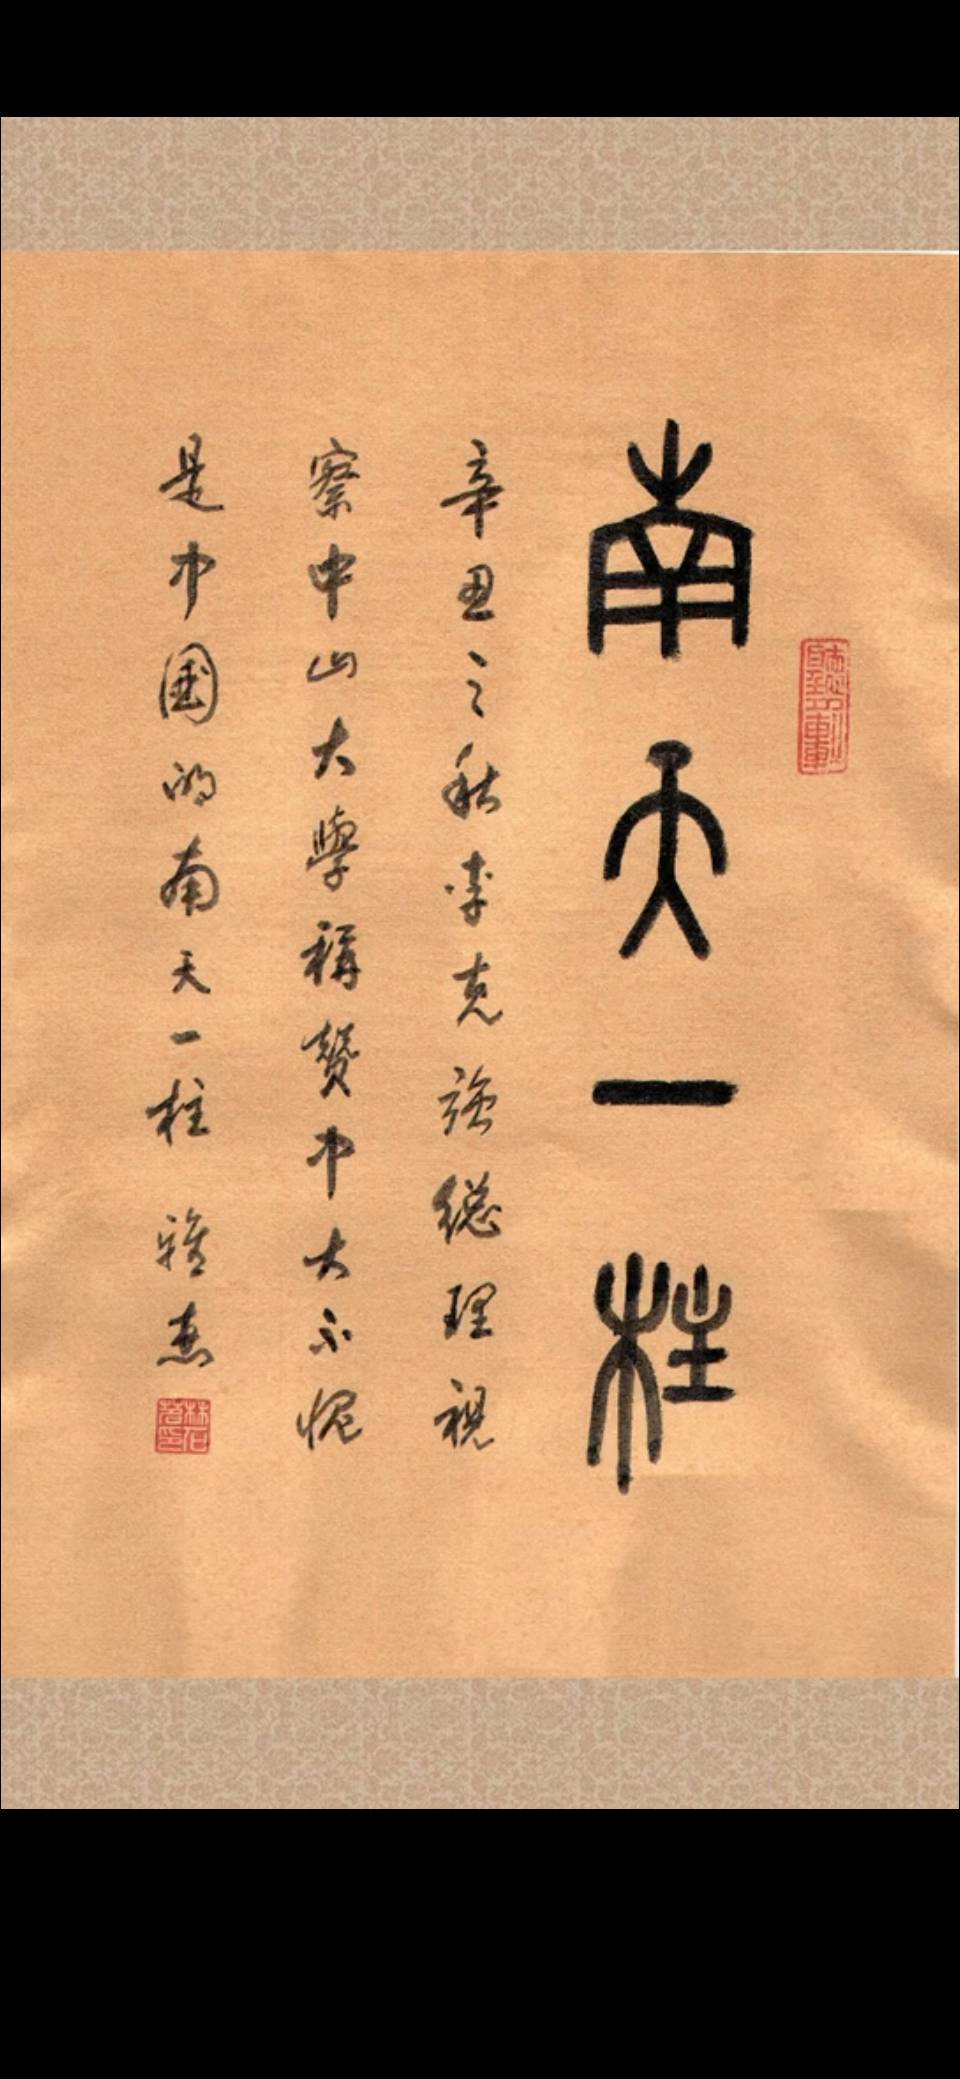 南天一柱
辛丑之秋李克強總理視
察中山大學稱贊中大不愧
是中國的南天一柱 雅惠